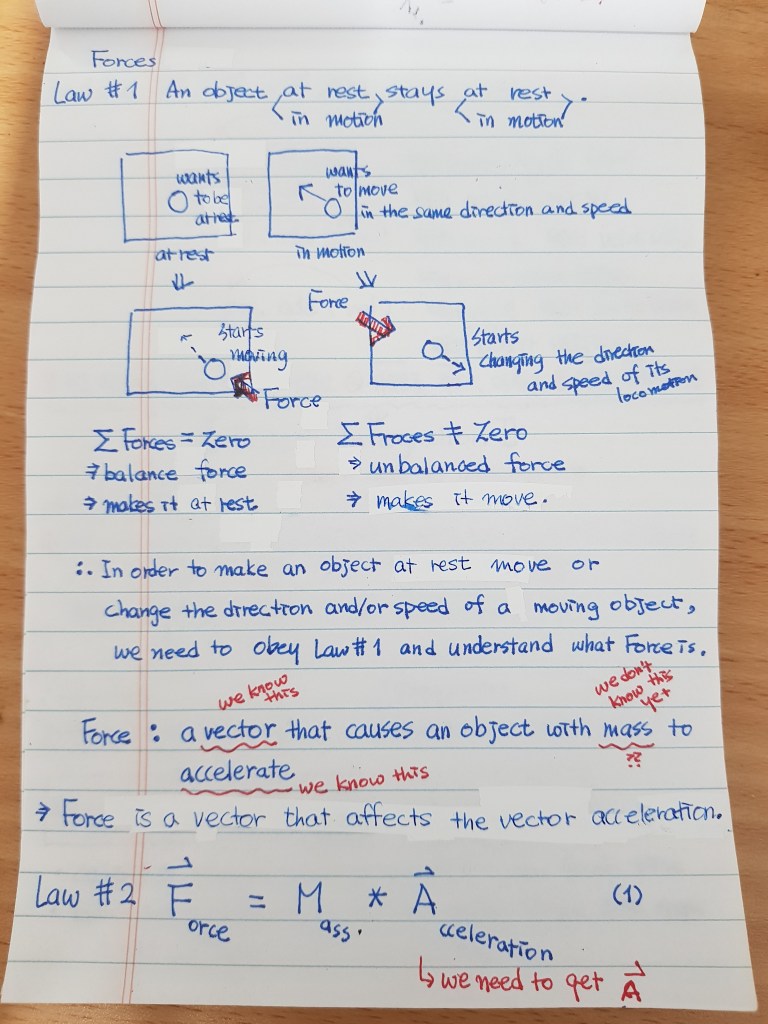 Forces
Law #1 An object at rest stays at rest.
in motion in motion
wants
to be
at rest
wants
to move
in the same direction and speed
at rest
in motion
Force
starts
moving
Force
starts
changing the direction
and speed of its
locomotion
Σ Forces = Zero
⇒ balance force
⇒ makes it at rest
Σ Froces ≠ Zero
⇒ unbalanced force
⇒ makes it move.
∴ In order to make an object at rest move or
change the direction and/or speed of a moving object,
we need to obey Law#1 and understand what Force is.
we know
this
we don't
know this
yet
Force : a vector that causes an object with mass to
??
accelerate we know this
⇒ Force is a vector that affects the vector acceleration.
Law #2 F⃗orce = Mass * A⃗cceleration (1)
↳ we need to get A⃗